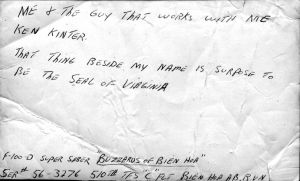 ME & THE GUY THAT WORKS WITH ME
KEN KINTER.
THAT THING BESIDE MY NAME IS SURPOSE TO
BE THE SEAL OF VIRGINIA
F-100 D SUPER SABER "BUZZARDS OF BIEN HOA"
SER# 56-3276 510th TFS "C" FLT BIEN HOA AB, RVN